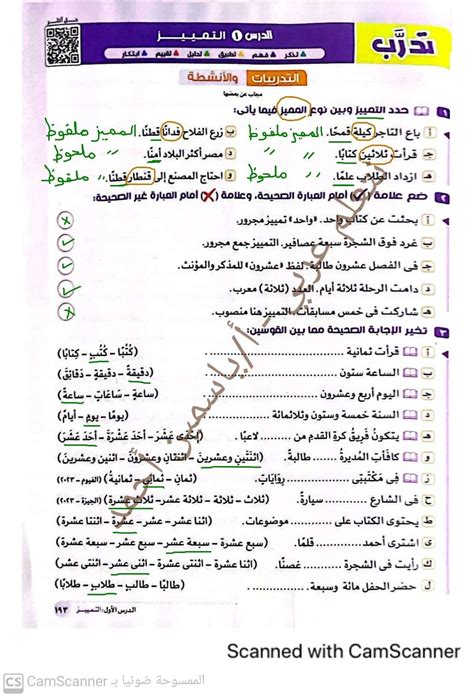 تدرَّب
الدرس ١ التمييز
تذكر فهم تطبيق تحليل تقييم ابتكار
التدريبات والأنشطة
مجاب عن بعضها
١ حدد التمييز وبين نوع المميز فيما يأتى:
أ باع التاجر كيلة قمحًا. المميز ملفوظ
ب زرع الفلاح فدانًا قطنًا. المميز ملفوظ
ج قرأت ثلاثين كتابًا. " " ملفوظ
د مصر أكثر البلاد أمنًا. " " ملحوظ
هـ ازداد الطلاب علمًا. " " ملحوظ
و احتاج المصنع إلى قنطار قطنًا. " " ملفوظ
٢ ضع علامة (✓) أمام العبارة الصحيحة، وعلامة (✗) أمام العبارة غير الصحيحة:
أ بحثت عن كتاب واحد. «واحد» تمييز مجرور.
ب غرد فوق الشجرة سبعة عصافير. التمييز جمع مجرور.
ج فى الفصل عشرون طالبة. لفظ «عشرون» للمذكر والمؤنث.
د دامت الرحلة ثلاثة أيام. العدد (ثلاثة) معرب.
هـ شاركت فى خمس مسابقات. التمييز هنا منصوب.
٣ تخير الإجابة الصحيحة مما بين القوسين:
أ قرأت ثمانية .......... (كُتُبًا – كُتُبٍ – كتابًا)
ب الساعة ستون .......... (دقيقةً – دقيقةٍ – دَقائِقَ)
ج اليوم أربع وعشرون .......... (ساعةٍ – سَاعَاتٍ – ساعةً)
د السنة خمسة وستون وثلاثمائة .......... (يومًا – يومٍ – أيامٍ)
هـ يتكون فريق كرة القدم من .......... لاعبًا. (إحْدَى عَشَرَ – أحَدَ عَشْرَةَ – أحَدَ عَشَرَ)
و كافأت المديرة .......... طالبة. (اثنتين وعشرين – اثنتان وعشرون – اثنين وعشرين)
ز فى مكتبتى .......... روايات. (ثمان – ثمانى – ثمانية) (الفيوم - ٢٠٢٣)
ح فى الشارع .......... سيارة. (ثلاث – ثلاثة – ثلاثة عشر – ثلاث عشرة) (الجيزة - ٢٠٢٣)
ط يحتوى الكتاب على .......... موضوعات. (اثنا عشر – عشرة – اثنتا عشرة)
ى اشترى أحمد .......... قلمًا. (سبع عشر – سبعة عشر – سبع عشرة)
ك رأيت فى الشجرة .......... غصنًا. (اثنا عشر – اثنى عشر – اثنتى عشرة)
ل حضر الحفل مائة وسبعة .......... (طالبًا – طالبٍ – طلابٍ – طلابًا)
أتعلم عربي - أ/ ياسمين أحمد
الدرس الأول: التمييز ١٩٣
Scanned with CamScanner
CS الممسوحة ضوئيا بـ CamScanner